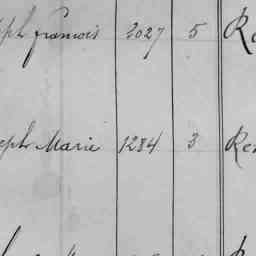 seph francois 2027 5 Re
seph Marie 1284 3 Ren